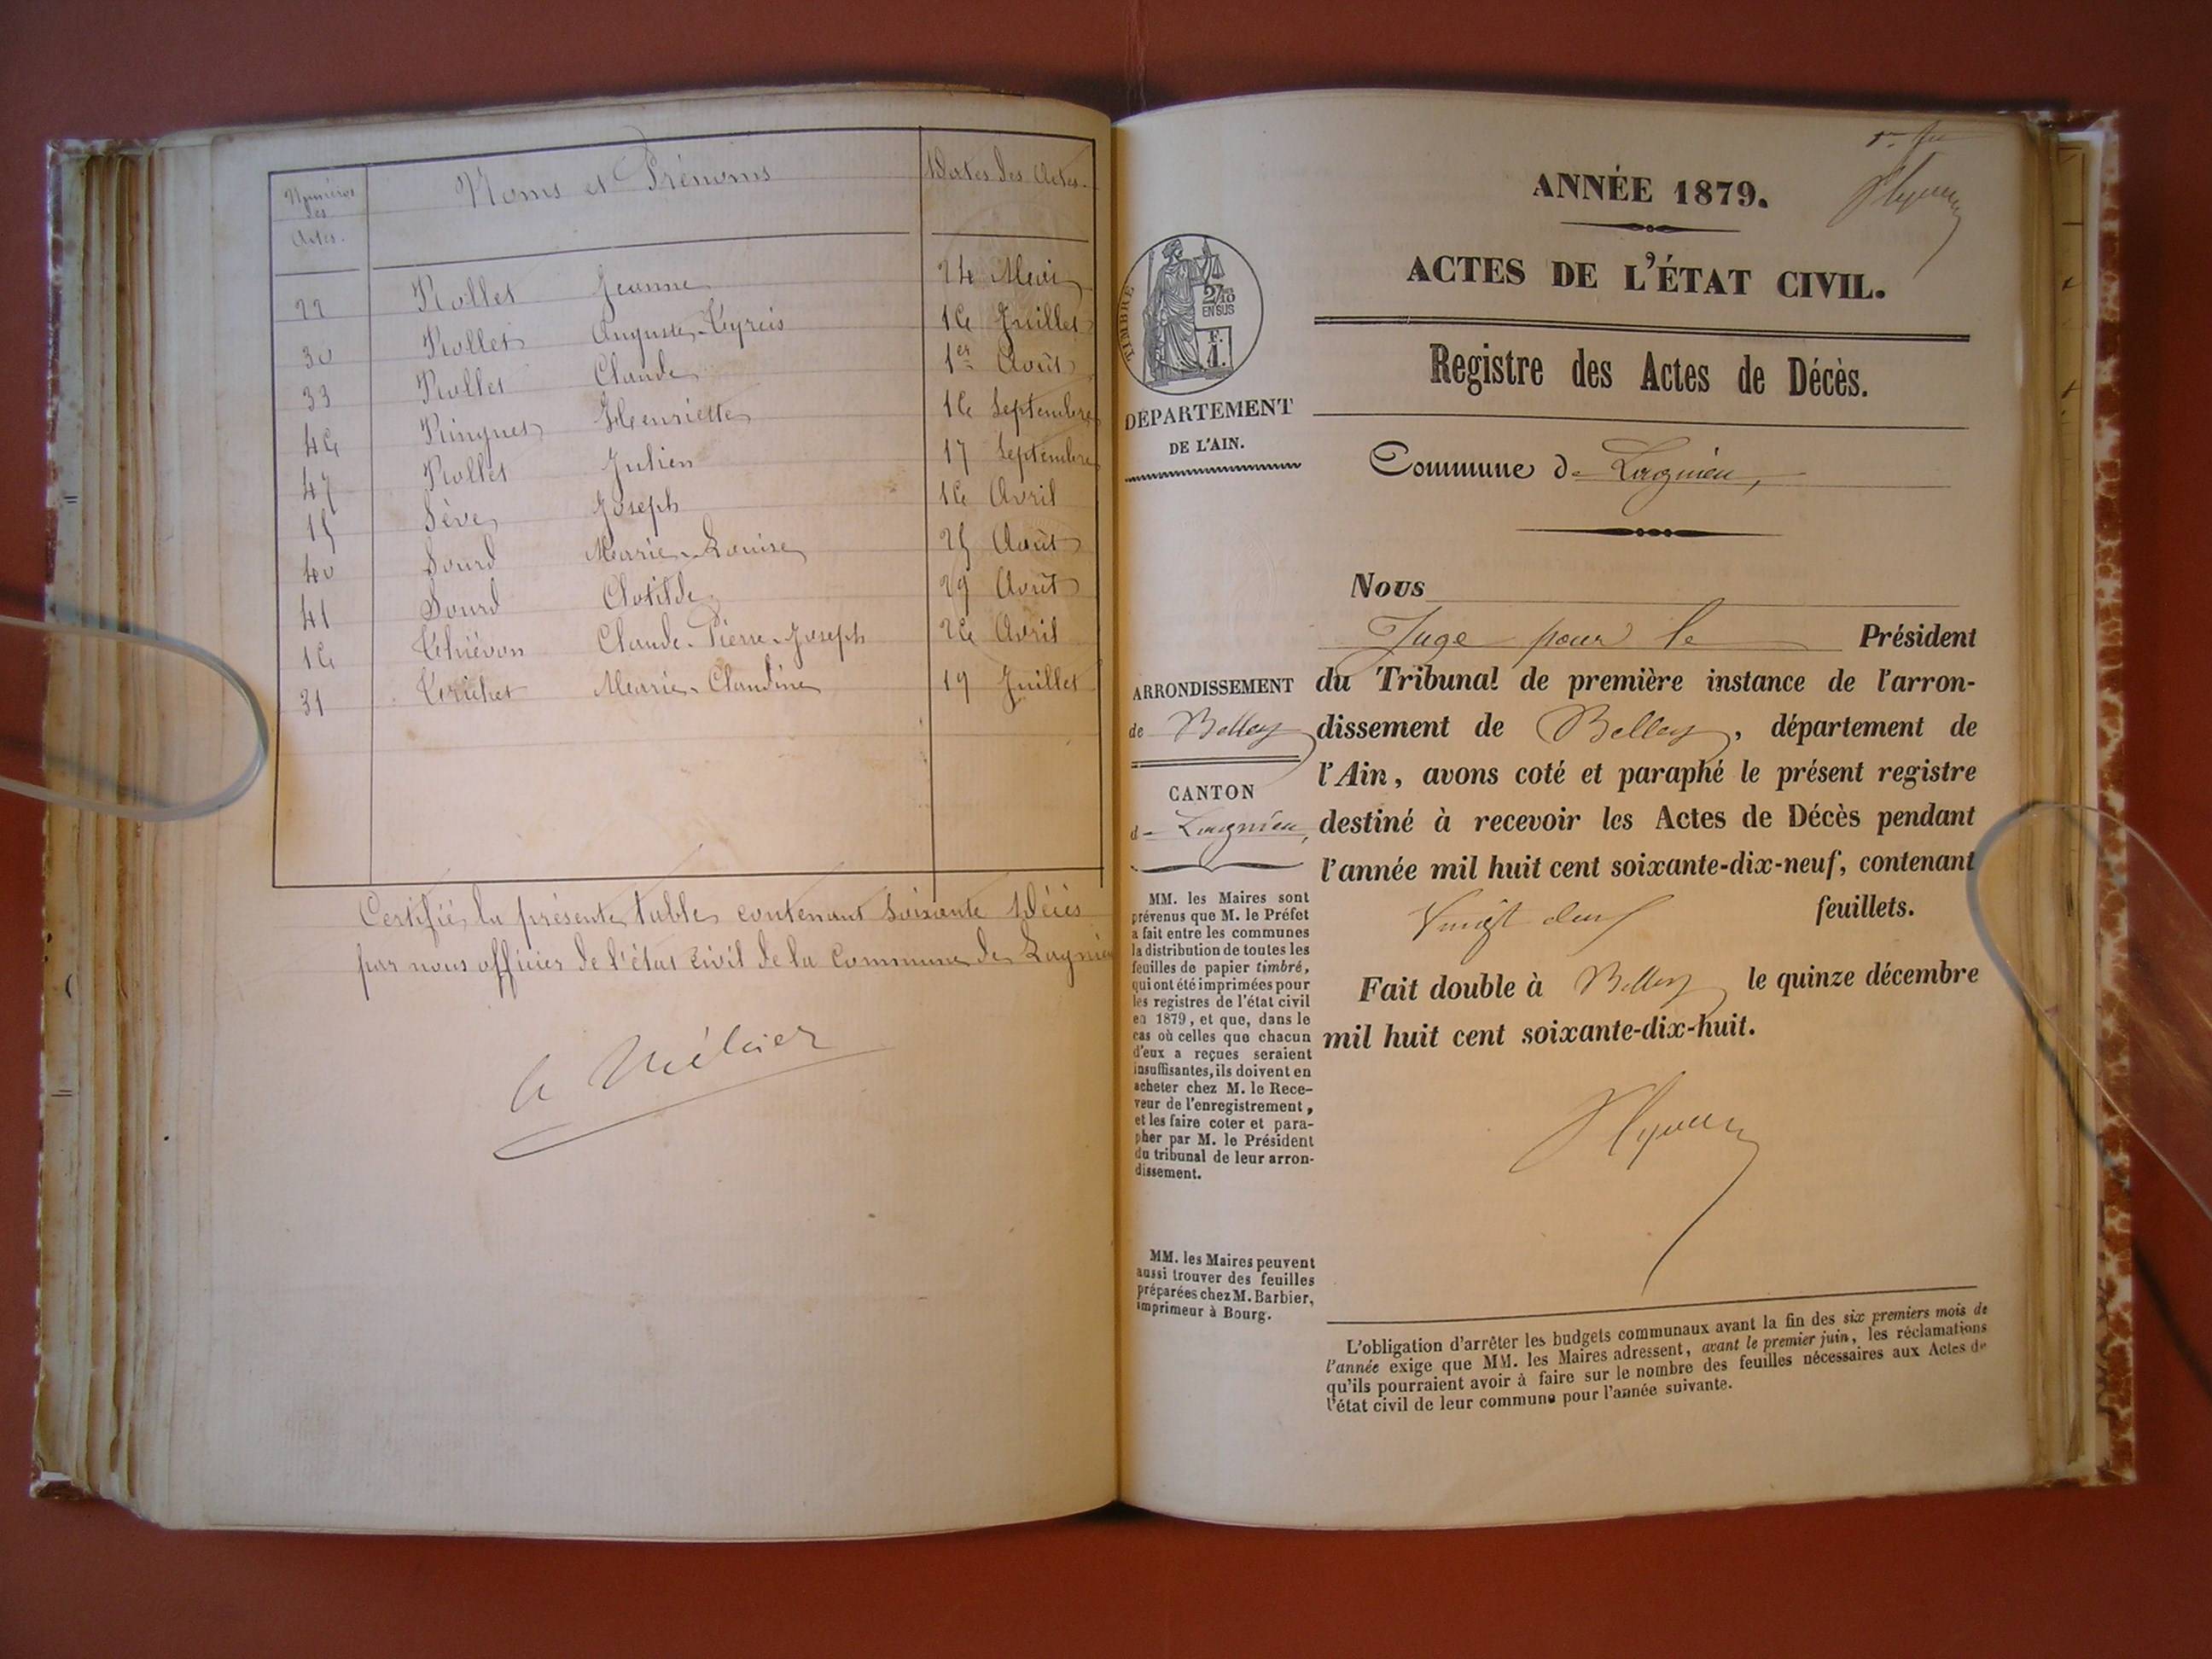 Numéros des Actes. Noms et Prénoms Dates des Actes.
22 Rollet Jeanne 24 Mai
30 Rollet Auguste 16 Juillet
33 Rollet Claude 1er Août
46 Henriette 16 Septembre
47 Rollet Julien 17 Septembre
15 Sève Joseph 16 Avril
40 Sourd Marie-Louise 25 Août
41 Sourd Clotilde 29 Août
16 Thiévon Claude-Pierre-Joseph 26 Avril
31 Trichet Marie-Claudine 19 Juillet
Certifié la présente table contenant soixante Décès
par nous officier de l'état civil de la Commune de Lagnieu
ANNÉE 1879.
ACTES DE L'ÉTAT CIVIL.
Registre des Actes de Décès.
TIMBRE
2/10 EN SUS
F. 1.
DÉPARTEMENT
DE L'AIN.
Commune de Lagnieu,
Nous
Juge pour le Président
du Tribunal de première instance de l'arron-
dissement de Belley, département de
l'Ain, avons coté et paraphé le présent registre
destiné à recevoir les Actes de Décès pendant
l'année mil huit cent soixante-dix-neuf, contenant
Vingt deux feuillets.
Fait double à Belley le quinze décembre
mil huit cent soixante-dix-huit.
ARRONDISSEMENT
de Belley
CANTON
de Lagnieu,
MM. les Maires sont
prévenus que M. le Préfet
a fait entre les communes
la distribution de toutes les
feuilles de papier timbré,
qui ont été imprimées pour
les registres de l'état civil
en 1879, et que, dans le
cas où celles que chacun
d'eux a reçues seraient
insuffisantes, ils doivent en
acheter chez M. le Rece-
veur de l'enregistrement,
et les faire coter et para-
pher par M. le Président
du tribunal de leur arron-
dissement.
MM. les Maires peuvent
aussi trouver des feuilles
préparées chez M. Barbier,
imprimeur à Bourg.
L'obligation d'arrêter les budgets communaux avant la fin des six premiers mois de
l'année exige que MM. les Maires adressent, avant le premier juin, les réclamations
qu'ils pourraient avoir à faire sur le nombre des feuilles nécessaires aux Actes de
l'état civil de leur commune pour l'année suivante.